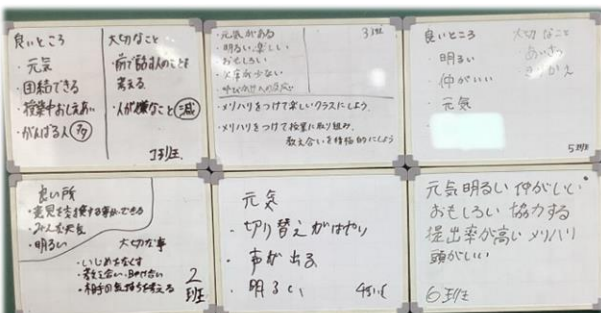 良いところ
・元気
・団結できる
・授業中おしえあい
・がんばる人 多
大切なこと
・前で話す人のことを
考える
・人が嫌なこと 減
1班
・元気がある
・明るい、楽しい
・おもしろい
3班
・メリハリをつけて楽しいクラスにしよう。
・メリハリをつけて授業に取り組み、
教え合いを積極的にしよう
良いところ
・明るい
・仲がいい
・元気
大切なこと
・あいさつ
5班
良い所
・意見を交換する事ができる
・みんな元気
・明るい
大切な事
・いじめをなくす
・教え合い、助け合い
・相手の気持ちを考える
2班
元気
・切り替えがはやい
・声が出る
・明るい
4はん
元気 明るい 仲がいい
おもしろい 協力する
提出率が高い メリハリ
頭がいい
6班